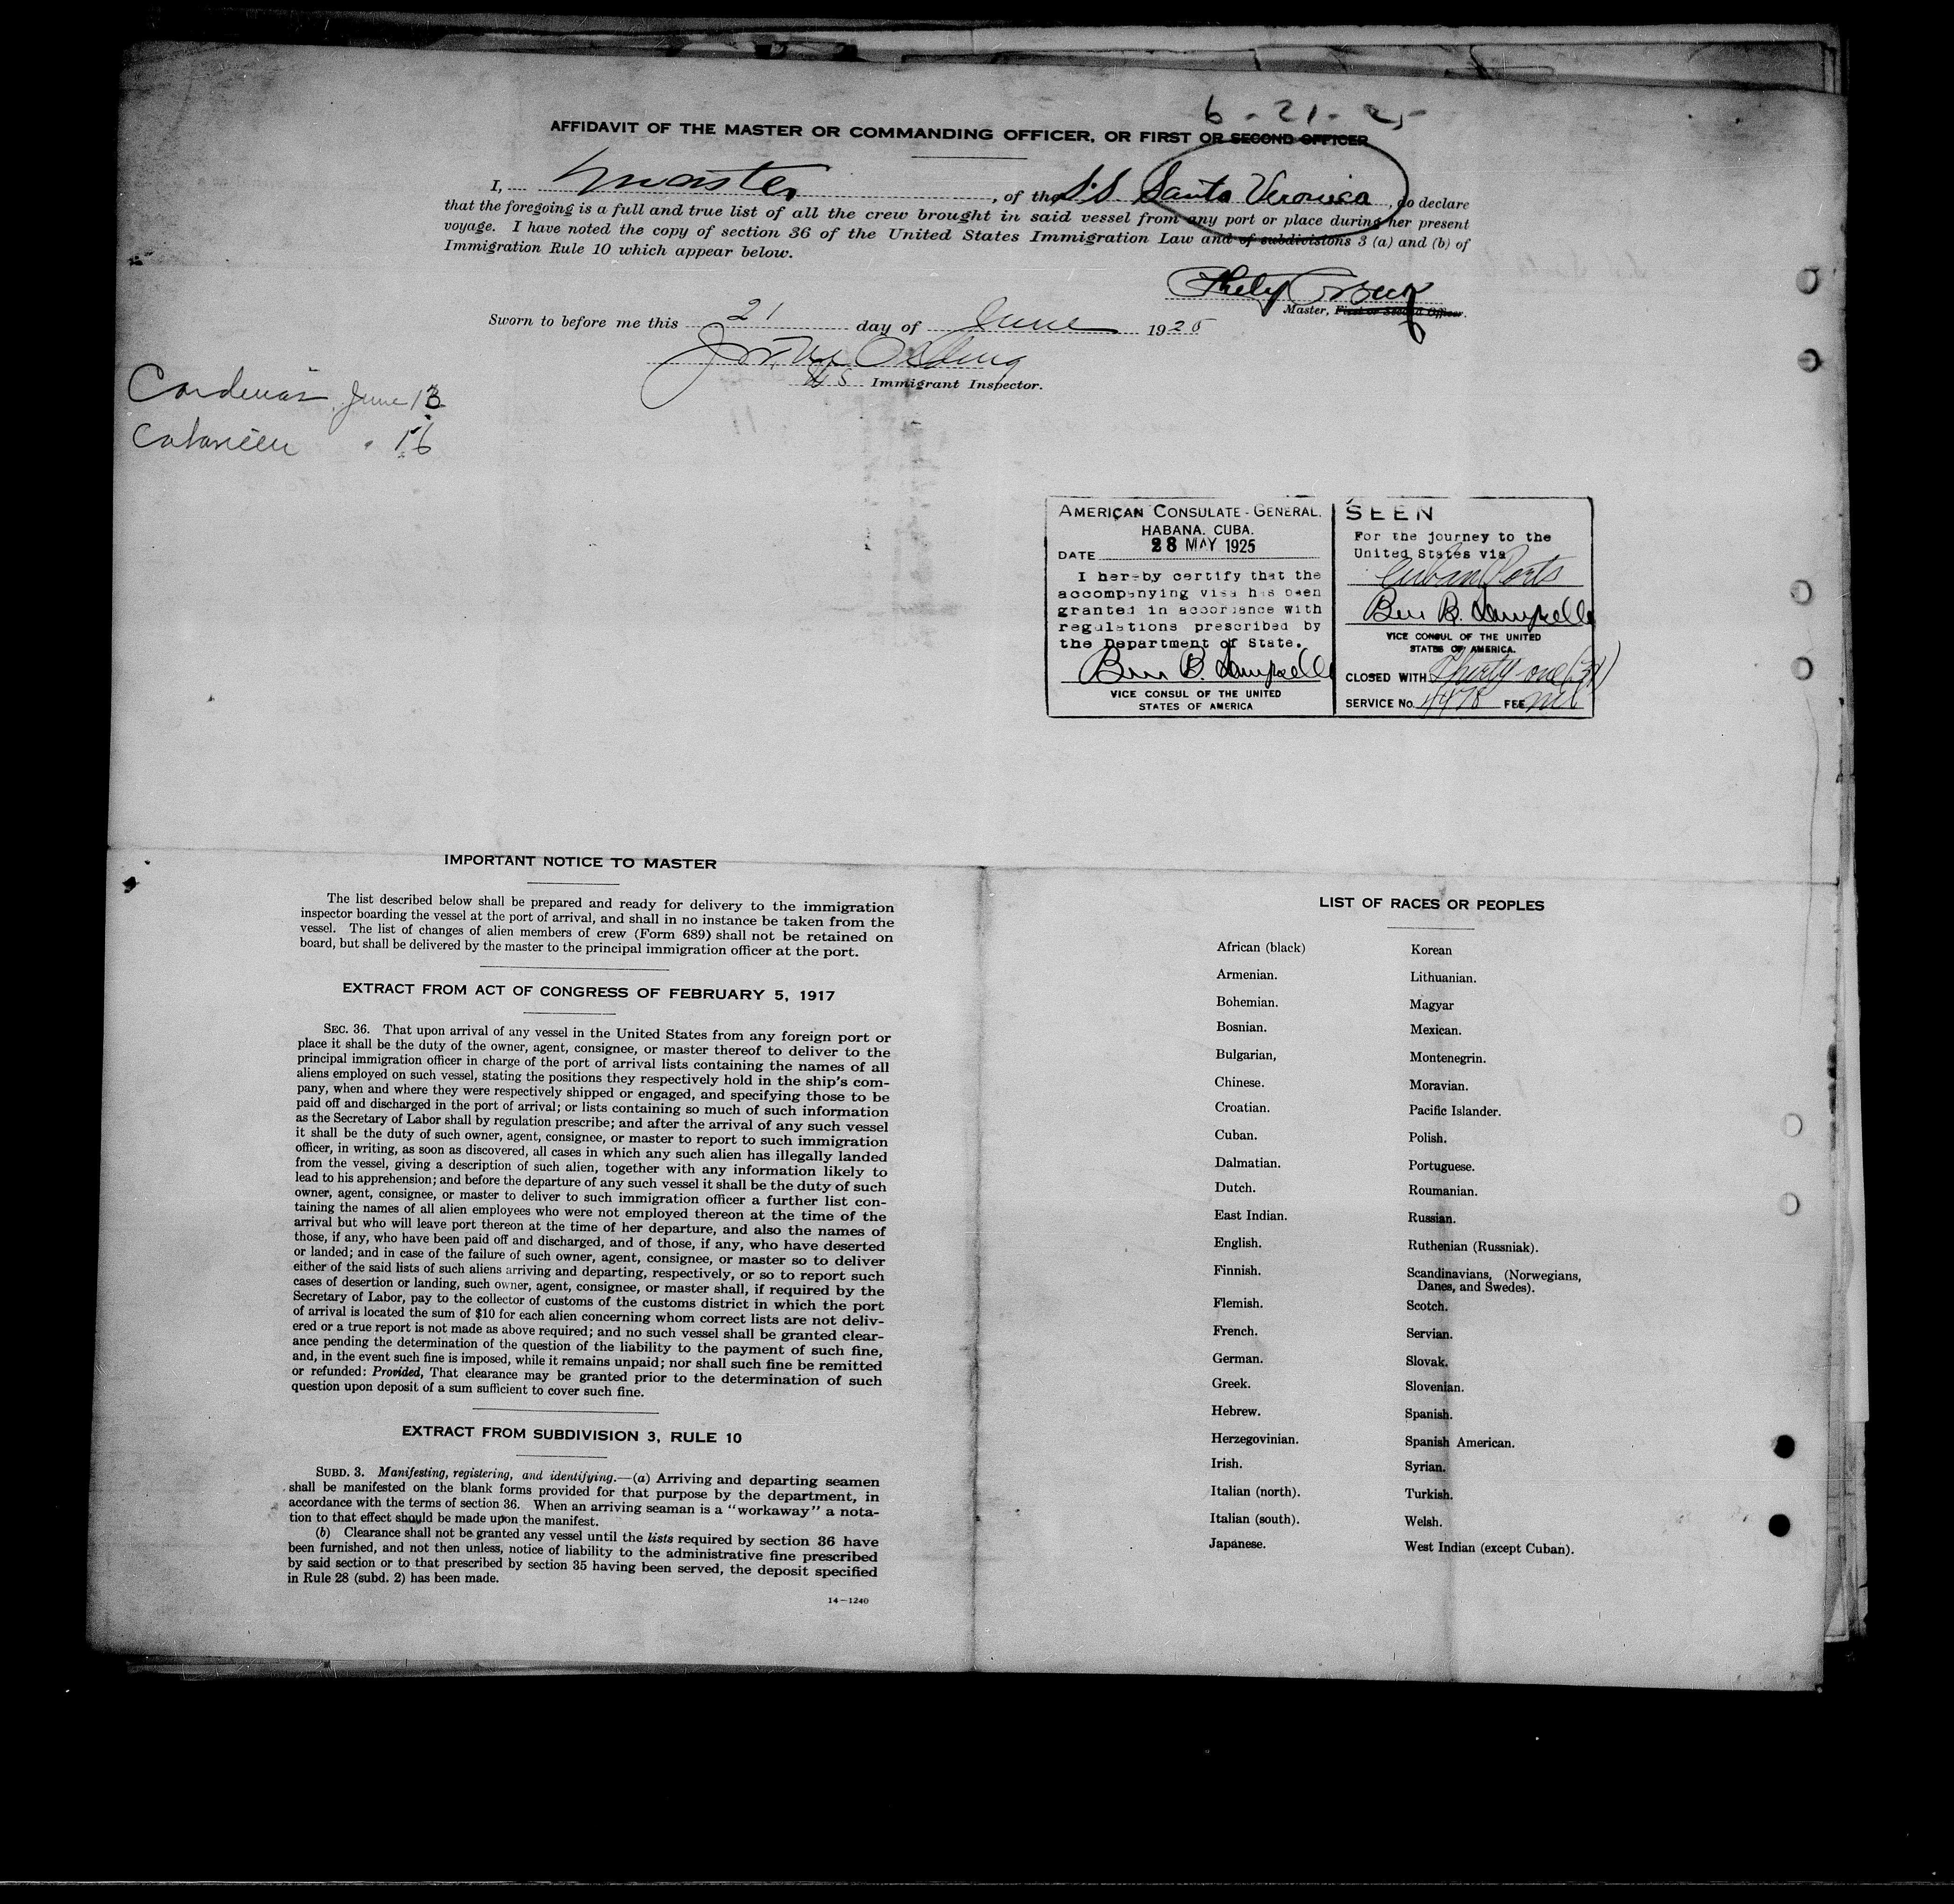 6-21-25
AFFIDAVIT OF THE MASTER OR COMMANDING OFFICER, OR FIRST OR SECOND OFFICER
I, master, of the S.S. Santa Veronica, do declare
that the foregoing is a full and true list of all the crew brought in said vessel from any port or place during her present
voyage. I have noted the copy of section 36 of the United States Immigration Law and of subdivisions 3 (a) and (b) of
Immigration Rule 10 which appear below.
Master, First or Second Officer.
Sworn to before me this 21 day of June 1925
US Immigrant Inspector.
Cardenas June 13
" 16
AMERICAN CONSULATE-GENERAL.
HABANA. CUBA.
DATE 28 MAY 1925
I hereby certify that the
accompanying visa has been
granted in accordance with
regulations prescribed by
the Department of State.
Ben B.
VICE CONSUL OF THE UNITED
STATES OF AMERICA
SEEN
For the journey to the
United States via
Cuban Ports
Ben B.
VICE CONSUL OF THE UNITED
STATES OF AMERICA.
CLOSED WITH Thirty one (31)
SERVICE No. 4478 FEE nil
IMPORTANT NOTICE TO MASTER
The list described below shall be prepared and ready for delivery to the immigration
inspector boarding the vessel at the port of arrival, and shall in no instance be taken from the
vessel. The list of changes of alien members of crew (Form 689) shall not be retained on
board, but shall be delivered by the master to the principal immigration officer at the port.
EXTRACT FROM ACT OF CONGRESS OF FEBRUARY 5, 1917
SEC. 36. That upon arrival of any vessel in the United States from any foreign port or
place it shall be the duty of the owner, agent, consignee, or master thereof to deliver to the
principal immigration officer in charge of the port of arrival lists containing the names of all
aliens employed on such vessel, stating the positions they respectively hold in the ship's com-
pany, when and where they were respectively shipped or engaged, and specifying those to be
paid off and discharged in the port of arrival; or lists containing so much of such information
as the Secretary of Labor shall by regulation prescribe; and after the arrival of any such vessel
it shall be the duty of such owner, agent, consignee, or master to report to such immigration
officer, in writing, as soon as discovered, all cases in which any such alien has illegally landed
from the vessel, giving a description of such alien, together with any information likely to
lead to his apprehension; and before the departure of any such vessel it shall be the duty of such
owner, agent, consignee, or master to deliver to such immigration officer a further list con-
taining the names of all alien employees who were not employed thereon at the time of the
arrival but who will leave port thereon at the time of her departure, and also the names of
those, if any, who have been paid off and discharged, and of those, if any, who have deserted
or landed; and in case of the failure of such owner, agent, consignee, or master so to deliver
either of the said lists of such aliens arriving and departing, respectively, or so to report such
cases of desertion or landing, such owner, agent, consignee, or master shall, if required by the
Secretary of Labor, pay to the collector of customs of the customs district in which the port
of arrival is located the sum of $10 for each alien concerning whom correct lists are not deliv-
ered or a true report is not made as above required; and no such vessel shall be granted clear-
ance pending the determination of the question of the liability to the payment of such fine,
and, in the event such fine is imposed, while it remains unpaid; nor shall such fine be remitted
or refunded: Provided, That clearance may be granted prior to the determination of such
question upon deposit of a sum sufficient to cover such fine.
EXTRACT FROM SUBDIVISION 3, RULE 10
SUBD. 3. Manifesting, registering, and identifying.—(a) Arriving and departing seamen
shall be manifested on the blank forms provided for that purpose by the department, in
accordance with the terms of section 36. When an arriving seaman is a "workaway" a nota-
tion to that effect should be made upon the manifest.
(b) Clearance shall not be granted any vessel until the lists required by section 36 have
been furnished, and not then unless, notice of liability to the administrative fine prescribed
by said section or to that prescribed by section 35 having been served, the deposit specified
in Rule 28 (subd. 2) has been made.
14—1240
LIST OF RACES OR PEOPLES
African (black)
Armenian.
Bohemian.
Bosnian.
Bulgarian,
Chinese.
Croatian.
Cuban.
Dalmatian.
Dutch.
East Indian.
English.
Finnish.
Flemish.
French.
German.
Greek.
Hebrew.
Herzegovinian.
Irish.
Italian (north).
Italian (south).
Japanese.
Korean
Lithuanian.
Magyar
Mexican.
Montenegrin.
Moravian.
Pacific Islander.
Polish.
Portuguese.
Roumanian.
Russian.
Ruthenian (Russniak).
Scandinavians, (Norwegians,
Danes, and Swedes).
Scotch.
Servian.
Slovak.
Slovenian.
Spanish.
Spanish American.
Syrian.
Turkish.
Welsh.
West Indian (except Cuban).